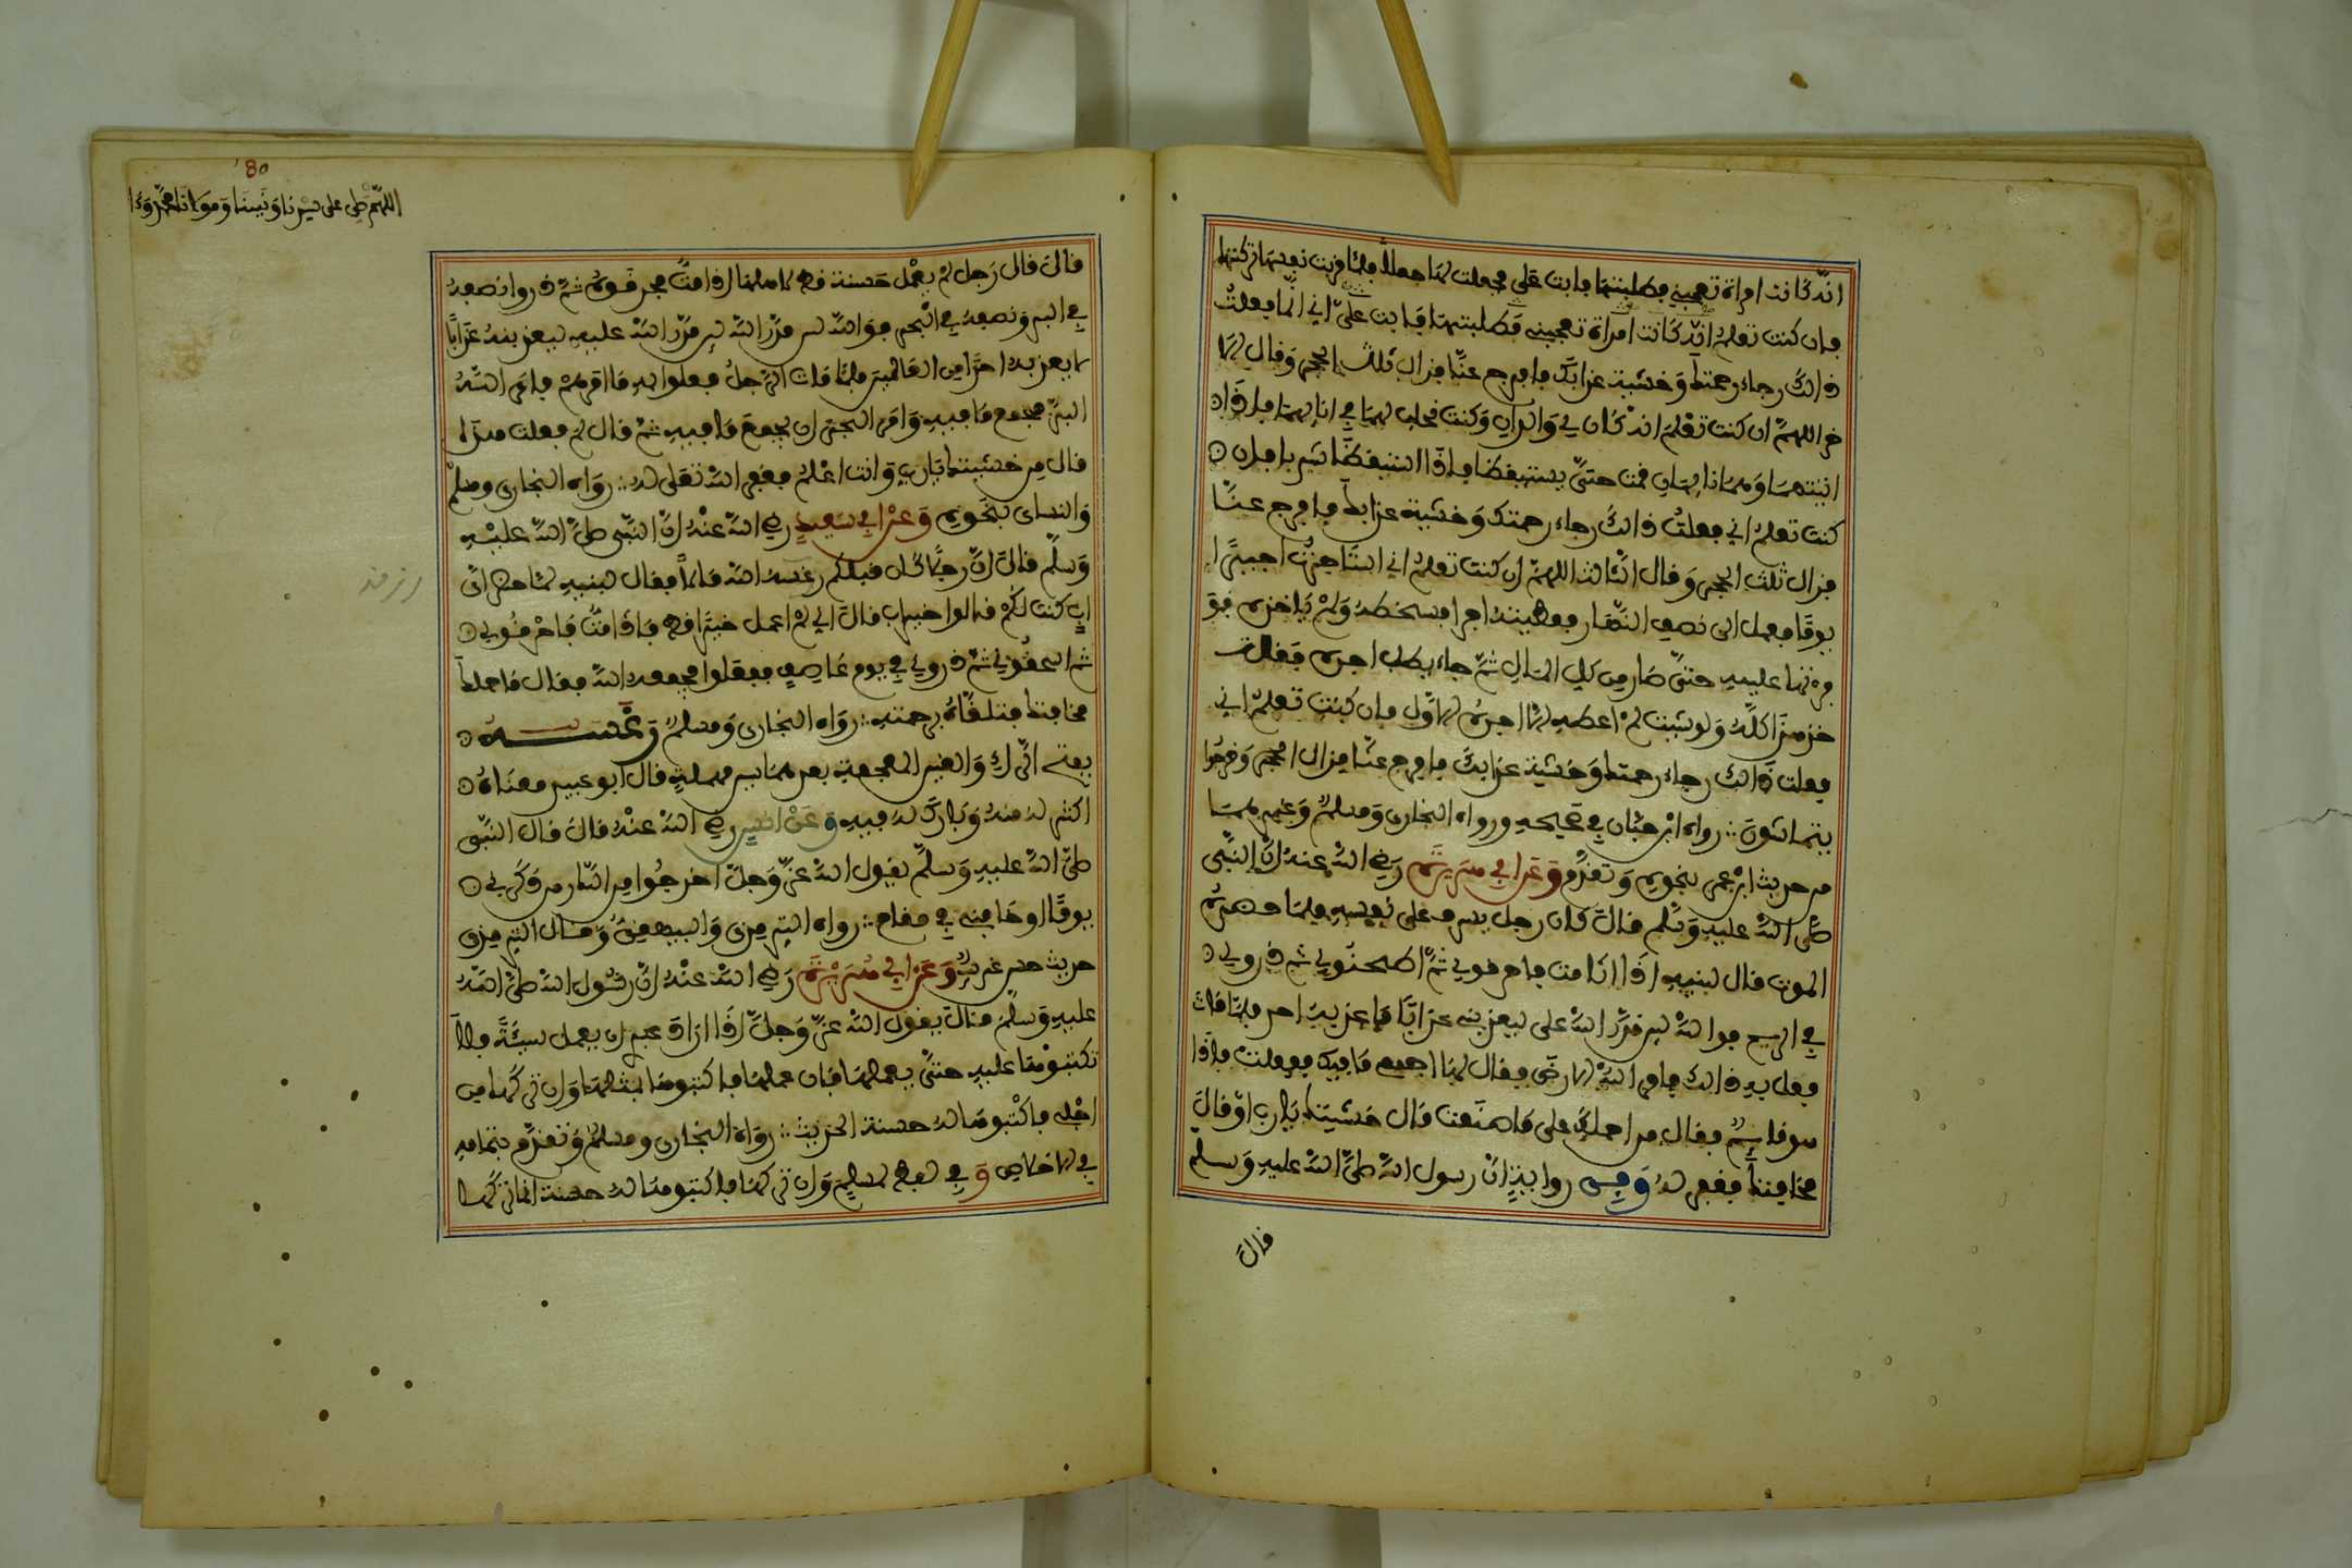 انه كانت امراة تعجبني فطلبتها فابت علي فجعلت لها جعلا فلما قربت نفسها تركتها
فان كنت تعلم انه كانت امراة تعجبني فطلبتها فابت علي اني انما فعلت
ذالك رجاء رحمتك وخشية عذابك فافرج عنا فزال ثلث الحجر وقال الا
خر اللهم ان كنت تعلم انه كان لي والدان وكنت احلب لهما في انائهما فاذا
اتيتهما وهما نائمان قمت حتى يستيقظا فاذا استيقظا شربا فان
كنت تعلم اني فعلت ذالك رجاء رحمتك وخشية عذابك فافرج عنا
فزال ثلث الحجر وقال الثالث اللهم ان كنت تعلم اني استاجرت اجيرا
يوما فعمل الى نصف النهار فاعطيته اجرا فسخطه ولم ياخذه فو
فرتها عليه حتى صار من كل المال ثم جاء يطلب اجره فقلت
خذ هذا كله ولو شيت لم اعطه الا اجره الاول فان كنت تعلم اني
فعلت ذالك رجاء رحمتك وخشية عذابك فافرج عنا فزال الحجر وخرجوا
يتماشون :: رواه ابن حبان في صحيحه ورواه البخاري ومسلم وغيرهما
من حديث ابن عمر بنحوه وتقدم وعن ابي هريرة رضي الله عنه ان النبي
صلى الله عليه وسلم قال كان رجل يسرف على نفسه فلما حضره
الموت قال لبنيه اذا انا مت فاحرقوني ثم اطحنوني ثم ذروني
في الريح فوالله لين قدر الله علي ليعذبني عذابا ما عذبه احد فلما مات
فعل به ذالك فامر الله الارض فقال لها اجمعي ما فيك ففعلت فاذا
هو قايم فقال من حملك على ما صنعت قال خشيتك يارب او قال
مخافتك فغفر له وفي رواية ان رسول الله صلى الله عليه وسلم
قال
80
اللهم صل على سيدنا ونبينا ومولانا محمد وءا
قال قال رجل لم يعمل حسنة قط لاهله اذا مت فحرقوه ثم ذروا نصفه
في البر ونصفه في البحر فوالله لين قدر الله عليه ليعذبنه عذابا
لا يعذبه احدا من العالمين فلما مات الرجل فعلوا به ما امرهم فامر الله
البر فجمع ما فيه وامر البحر ان يجمع ما فيه ثم قال لم فعلت هذا
قال من خشيتك يارب وانت اعلم فغفر الله تعلى له :: رواه البخاري ومسلم
والنساى بنحوه وعن ابي سعيد رضي الله عنه ان النبي صلى الله عليه
وسلم قال ان رجلا كان قبلكم رغسه الله مالا فقال لبنيه لما حضر اي
اب كنت لكم قالوا خير اب قال اني لم اعمل خيرا قط فاذا مت فاحرقوني
ثم اسحقوني ثم ذروني في يوم عاصف ففعلوا فجمعه الله فقال ما حملك
مخافتك فتلقاه برحمته :: رواه البخاري ومسلم رغسه
بفتح الراء والغين المعجمة بعدهما سين مهملة قال ابو عبيد معناه
اكثر له منه وبارك له فيه وعن انس رضي الله عنه قال قال النبي
صلى الله عليه وسلم يقول الله عز وجل اخرجوا من النار من ذكرني
يوما او خافني في مقام :: رواه الترمذي والبيهقي وقال الترمذي
حديث حسن غريب وعن ابي هريرة رضي الله عنه ان رسول الله صلى الله
عليه وسلم قال يقول الله عز وجل اذا اراد عبدي ان يعمل سيئة فلا
تكتبوها عليه حتى يعملها فان عملها فاكتبوها بمثلها وان تركها من
اجلي فاكتبوها له حسنة الحديث :: رواه البخاري ومسلم وتقدم بتمامه
في الاخلاص و في لفظ لمسلم وان تركها فاكتبوها له حسنة انما تركها